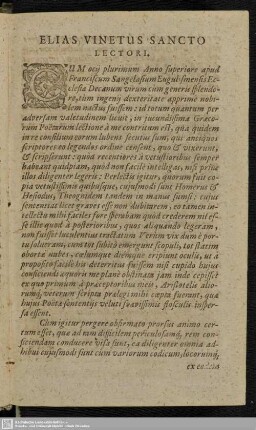 ELIAS VINETUS SANCTO
LECTORI.
CUM ocij plurimum Anno superiore apud
Franciscum Sangelasium Engolismensis Ec-
clesia Decanum virum cùm generis splendo-
re, tùm ingenij dexteritate apprimè nobi-
lem nactus fuissem: id totum quantum per
adversam valetudinem licuit, in jucundissima Græco-
rum Poëmatum lectione à me contritum est, quâ quidem
in re consilium eorum lubens secutus sum, qui antiquos
scriptores eo legendos ordine censent, quo & vixerunt,
& scripserunt: quod recentiores à vetustioribus semper
habeant quidpiam, quod non facilè intelligas, nisi priùs
illos diligenter legeris: Perlectis igitur, quorum fuit co-
pia vetustissimis quibusque, cujusmodi sunt Homerus &
Hesiodus, Theognidem tandem in manus sumsi: cujus
sententias licet grave esset non
mihi facilè fore speobam quòd crederem mi
à posterioribus, quos aliquando legeram,
non luculentus tractatus Verùm vix dum è por-
tu solveram, cùm tot subitò emergunt scopuli, tot statim
oborta nubes, cælumque denique eripiunt oculis, ut à
proposito facilè detterritus fuissem nisi cupido hujus
quoru me planè obstinatum jam inde cepisset
ex quo primùm à præceptoribus meis, Aristotelis alio-
rumq́, veterum scripta prælegi mihi capta fuerunt, quòd
hujus Poëta sententijs veluti suavissimis flosculis insper-
sa essent.
Cùm igitur pergere obfirmato prorsus animo cer-
tum esset, quæ ad non difficilem periculosamq́, rem con-
ficiendam conducere visa sunt, ea diligenter omnia ad-
hibui cujusmodi sunt cùm variorum codicum, locorumq́,
ex eodem